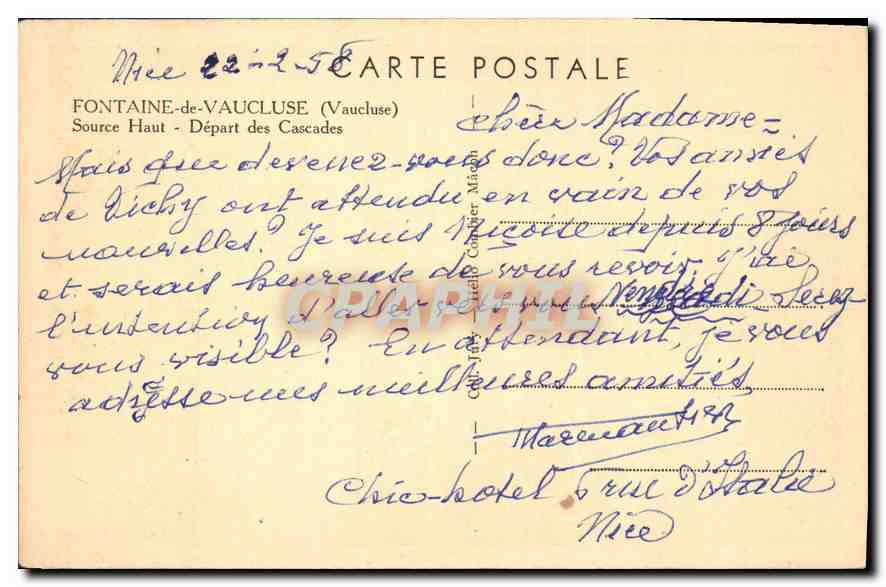 Nice 22-2-58
CARTE POSTALE
FONTAINE-de-VAUCLUSE (Vaucluse)
Source Haut - Départ des Cascades
Chère Madame=
Mais que devenez-vous donc? Vos amies
de Vichy ont attendu en vain de vos
nouvelles? Je suis Niçoise depuis 8 jours
et serais heureuse de vous revoir, j'ai
l'intention d'aller vers vous Vendredi Serez
vous visible? En attendant, je vous
adresse mes meilleures amitiés
Chic-hotel 5 rue d'Italie
Nice
Combier Mâcon
CPAPHIL